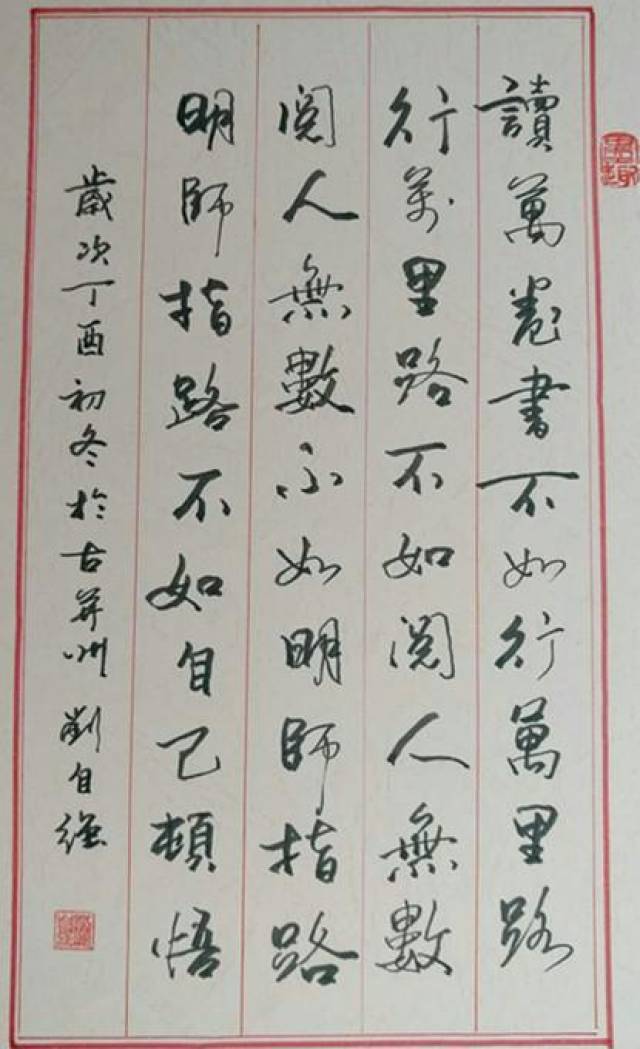 讀萬卷書不如行萬里路
行萬里路不如閱人無數
閱人無數不如明師指路
明師指路不如自己頓悟
歲次丁酉初冬於古并州劉自強